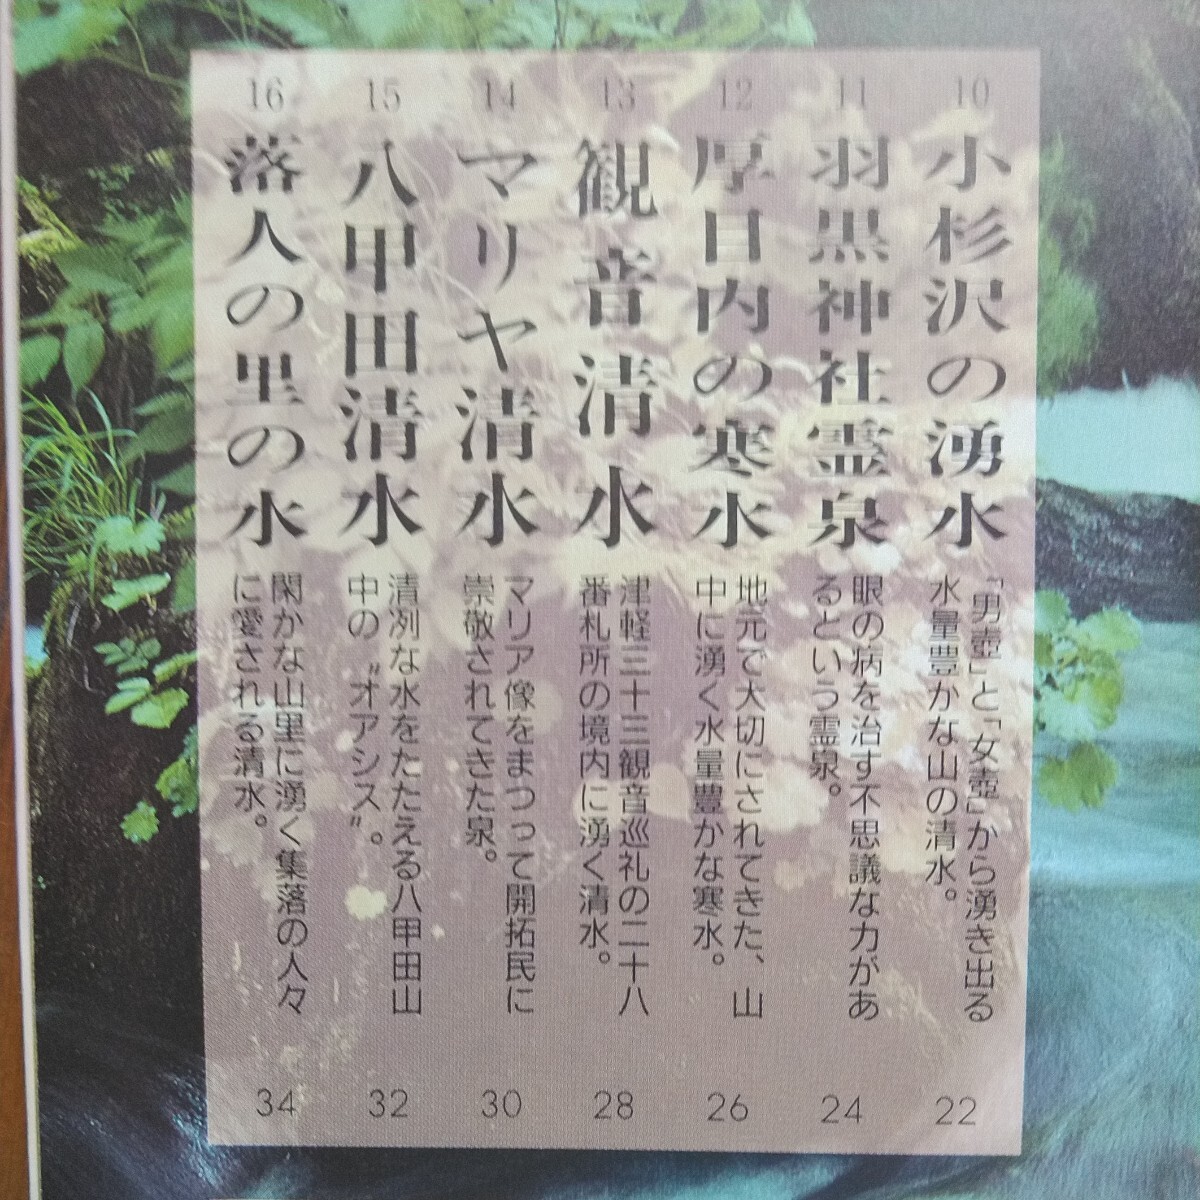 10
小杉沢の湧水
「男壺」と「女壺」から湧き出る
水量豊かな山の清水。
22
11
羽黒神社霊泉
眼の病を治す不思議な力があ
るという霊泉。
24
12
厚目内の寒水
地元で大切にされてきた、山
中に湧く水量豊かな寒水。
26
13
観音清水
津軽三十三観音巡礼の二十八
番札所の境内に湧く清水。
28
14
マリヤ清水
マリア像をまつって開拓民に
崇敬されてきた泉。
30
15
八甲田清水
清冽な水をたたえる八甲田山
中の〝オアシス〟。
32
16
落人の里の水
閑かな山里に湧く集落の人々
に愛される清水。
34